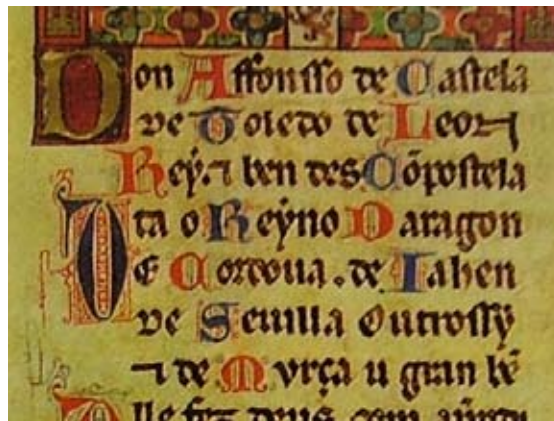 Don Affonsso de Castela
de Toledo de Leon
Rey. ⁊ ben des Cõpostela
ta o Reyno Daragon
E Cordoua. de Iahen
de Seuilla Outrossy
⁊ de Murça u gran bẽ
lle fez deus com